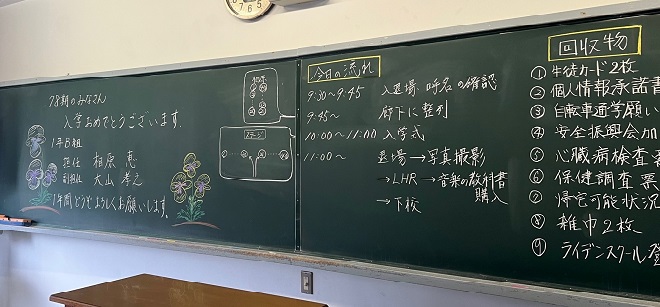 78期のみなさん
入学おめでとうございます。
1年B組
担任 相原 恵
副担任 大山 孝之
1年間どうぞよろしくお願いします。
ステージ
今日の流れ
9:30〜9:45 入退場、呼名の確認
9:45〜 廊下に整列
10:00〜11:00 入学式
11:00〜 退場→写真撮影
→LHR→音楽の教科書購入
→下校
回収物
① 生徒カード2枚
② 個人情報承諾書
③ 自転車通学願い
④ 安全振興会加
⑤ 心臓病検査票
⑥ 保健調査票
⑦ 帰宅可能状況
⑧ 雑巾2枚
⑨ ライデンスクール登